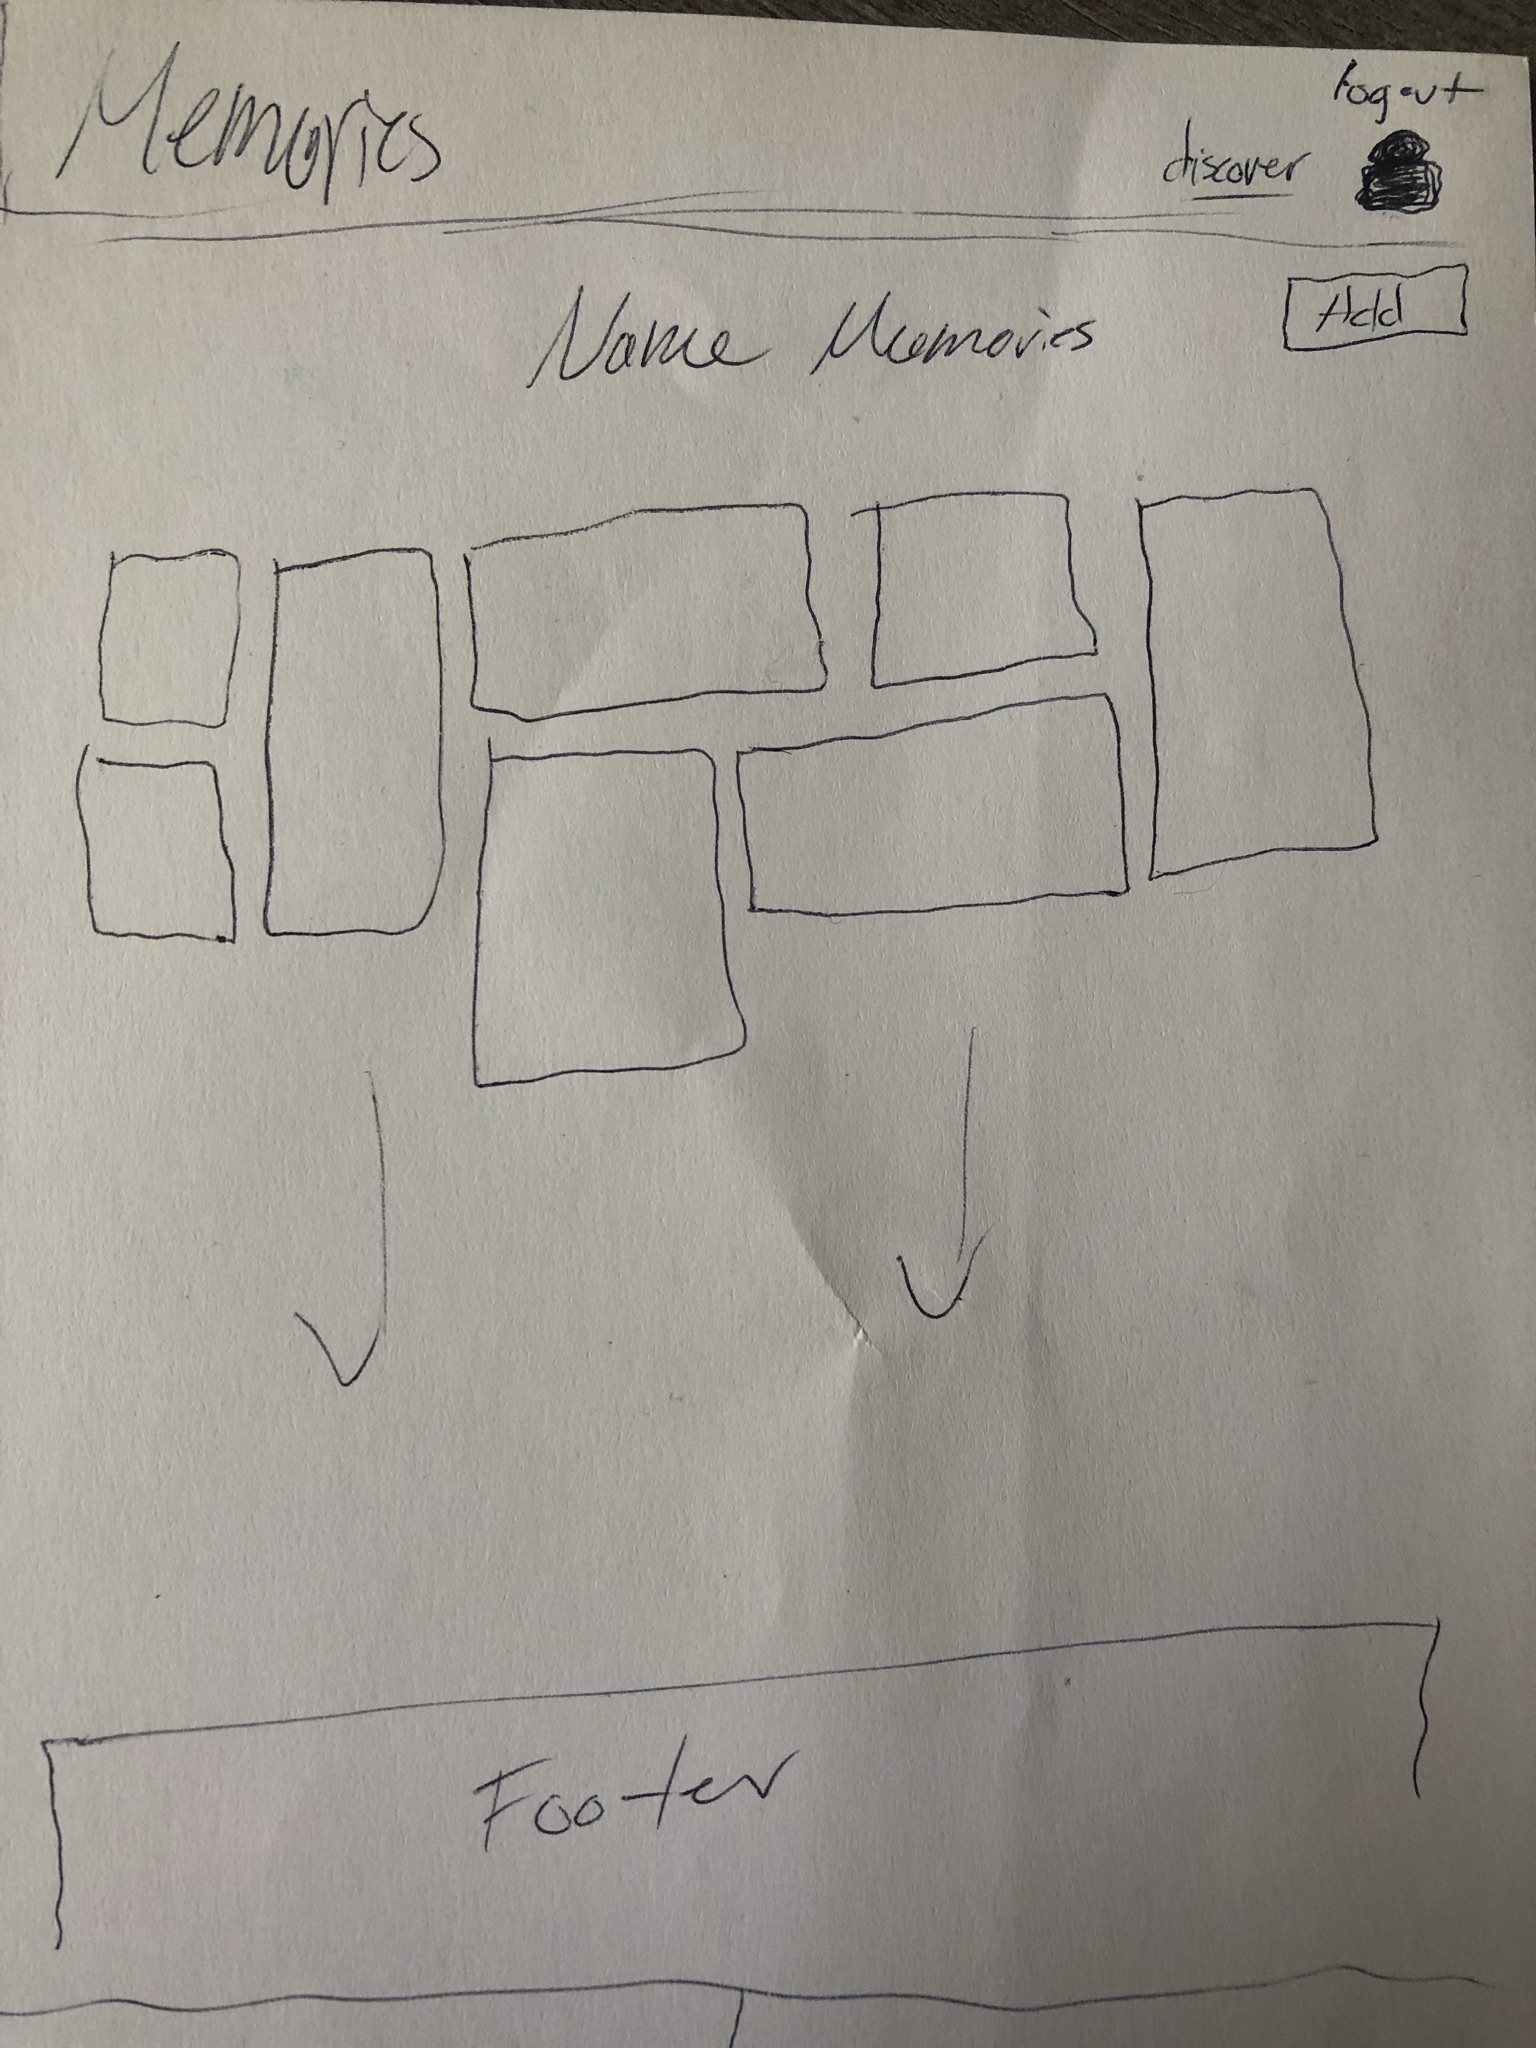 Memories
logout
discover
Name Memories
Add
Footer